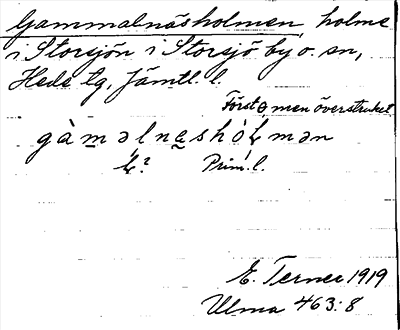 Gammalnäsholmen, holme
i Storsjön i Storsjö by o. sn,
Hede tg, Jämtl. l.
Först o men överstruket
gàməlnəshòɫmən
ɫ? Prim. l.
E. Terner 1919
Ulma 463:8